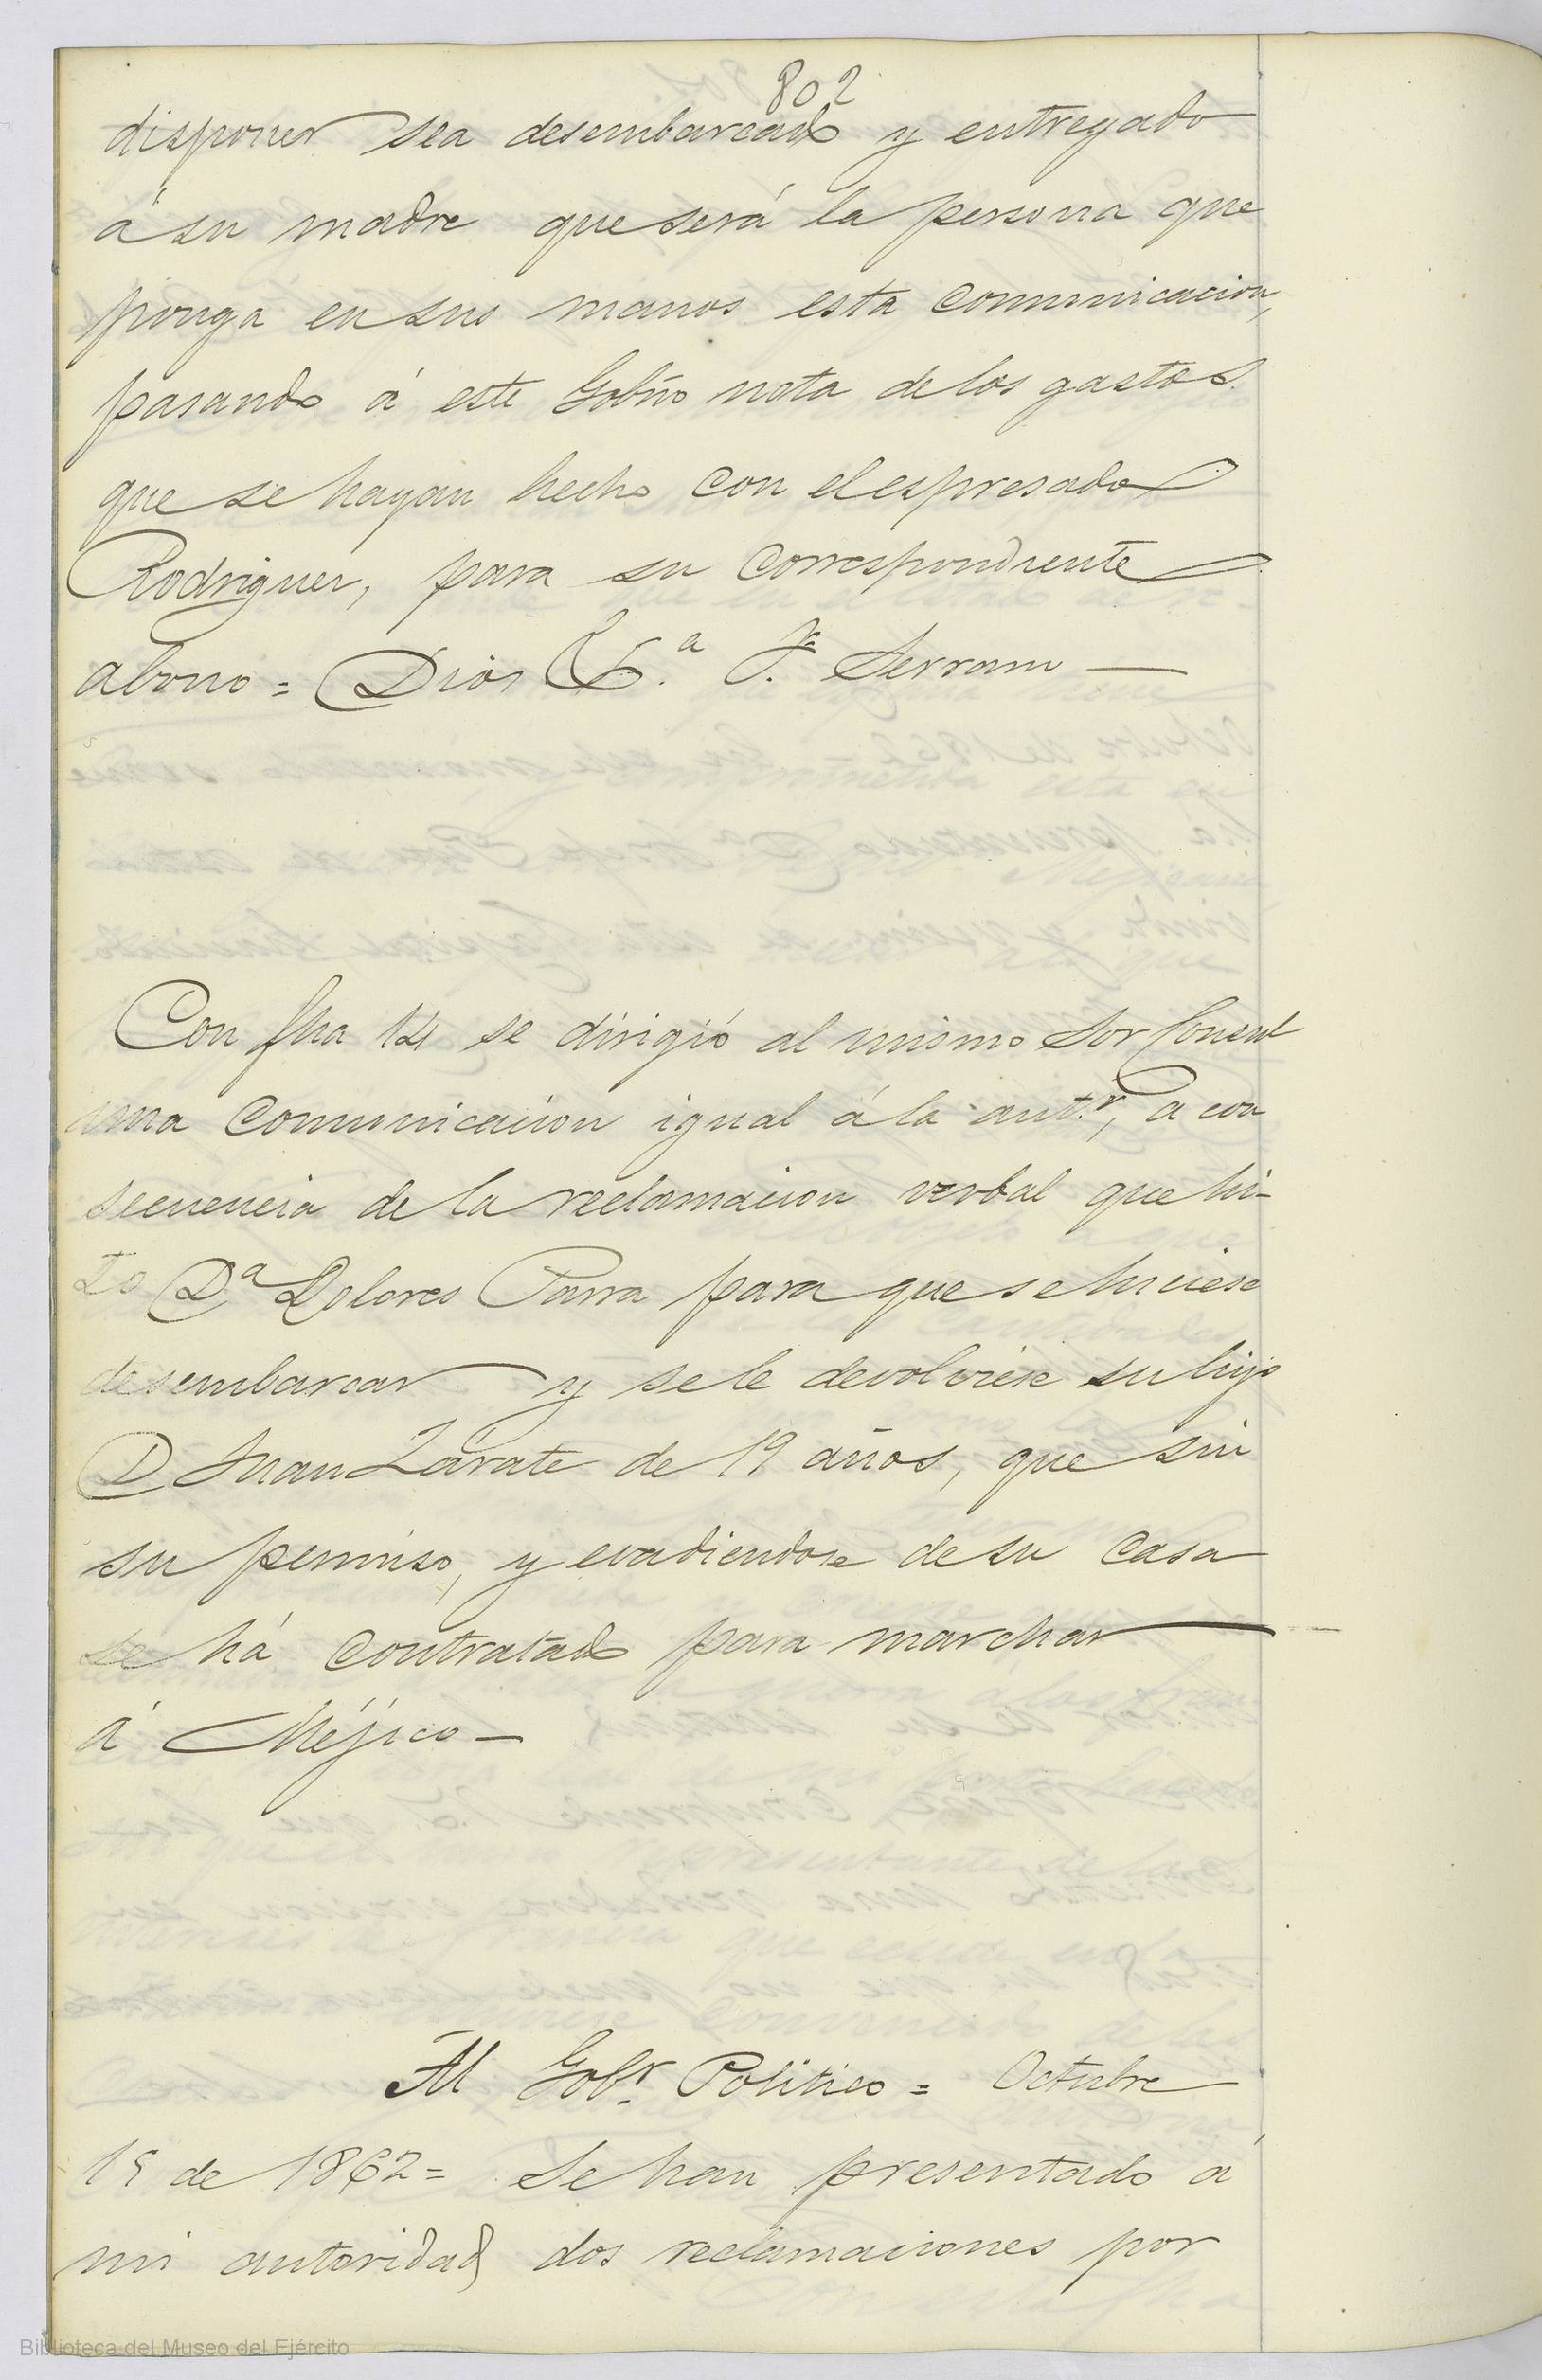 802
disponer sea desembarcado y entregado
á su madre que será la persona que
ponga en sus manos esta comunicacion,
pasando á este Gobno nota de los gastos
que se hayan hecho con el espresado
Rodriguez, para su correspondiente
abono = Dios &.a F. Serrano —
Con fha 14 se dirigió al mismo Sor Consul
una comunicacion igual á la ant.r, a con
secuencia de la reclamacion verbal que hi-
zo Da Dolores Parra para que se hiciese
desembarcar y se le devolviese su hijo
D Juan Zárate de 19 años, que sin
su permiso, y evadiendose de su casa
se há contratado para marchar
á Méjico —
Al Gob.r Politico = Octubre
15 de 1862 = Se han presentado á
mi autoridad dos reclamaciones por
Biblioteca del Museo del Ejército